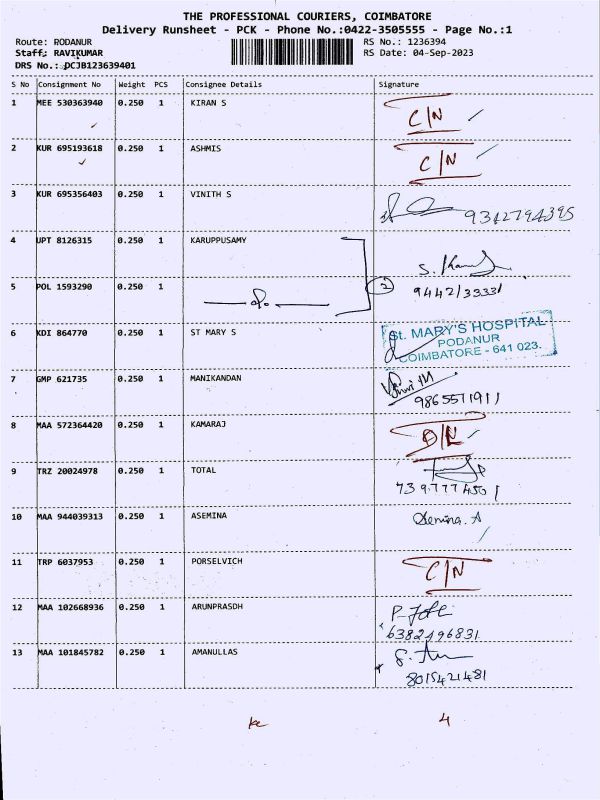 THE PROFESSIONAL COURIERS, COIMBATORE
Delivery Runsheet - PCK - Phone No.:0422-3505555 - Page No.:1
Route: RODANUR RS No.: 1236394
Staff: RAVIKUMAR RS Date: 04-Sep-2023
DRS No.: DCJB123639401
S No Consignment No Weight PCS Consignee Details Signature
1 MEE 530363940 0.250 1 KIRAN S C/N
2 KUR 695193618 0.250 1 ASHMIS C/N
3 KUR 695356403 0.250 1 VINITH S 9342794395
4 UPT 8126315 0.250 1 KARUPPUSAMY
5 POL 1593290 0.250 1 2 9442133331
6 KDI 864770 0.250 1 ST MARY S
St. MARY'S HOSPITAL
PODANUR
COIMBATORE - 641 023.
7 GMP 621735 0.250 1 MANIKANDAN
9865571911
8 MAA 572364420 0.250 1 KAMARAJ
9 TRZ 20024978 0.250 1 TOTAL
10 MAA 944039313 0.250 1 ASEMINA
11 TRP 6037953 0.250 1 PORSELVICH C/N
12 MAA 102668936 0.250 1 ARUNPRASDH
6382496831
13 MAA 101845782 0.250 1 AMANULLAS
8015421481
4